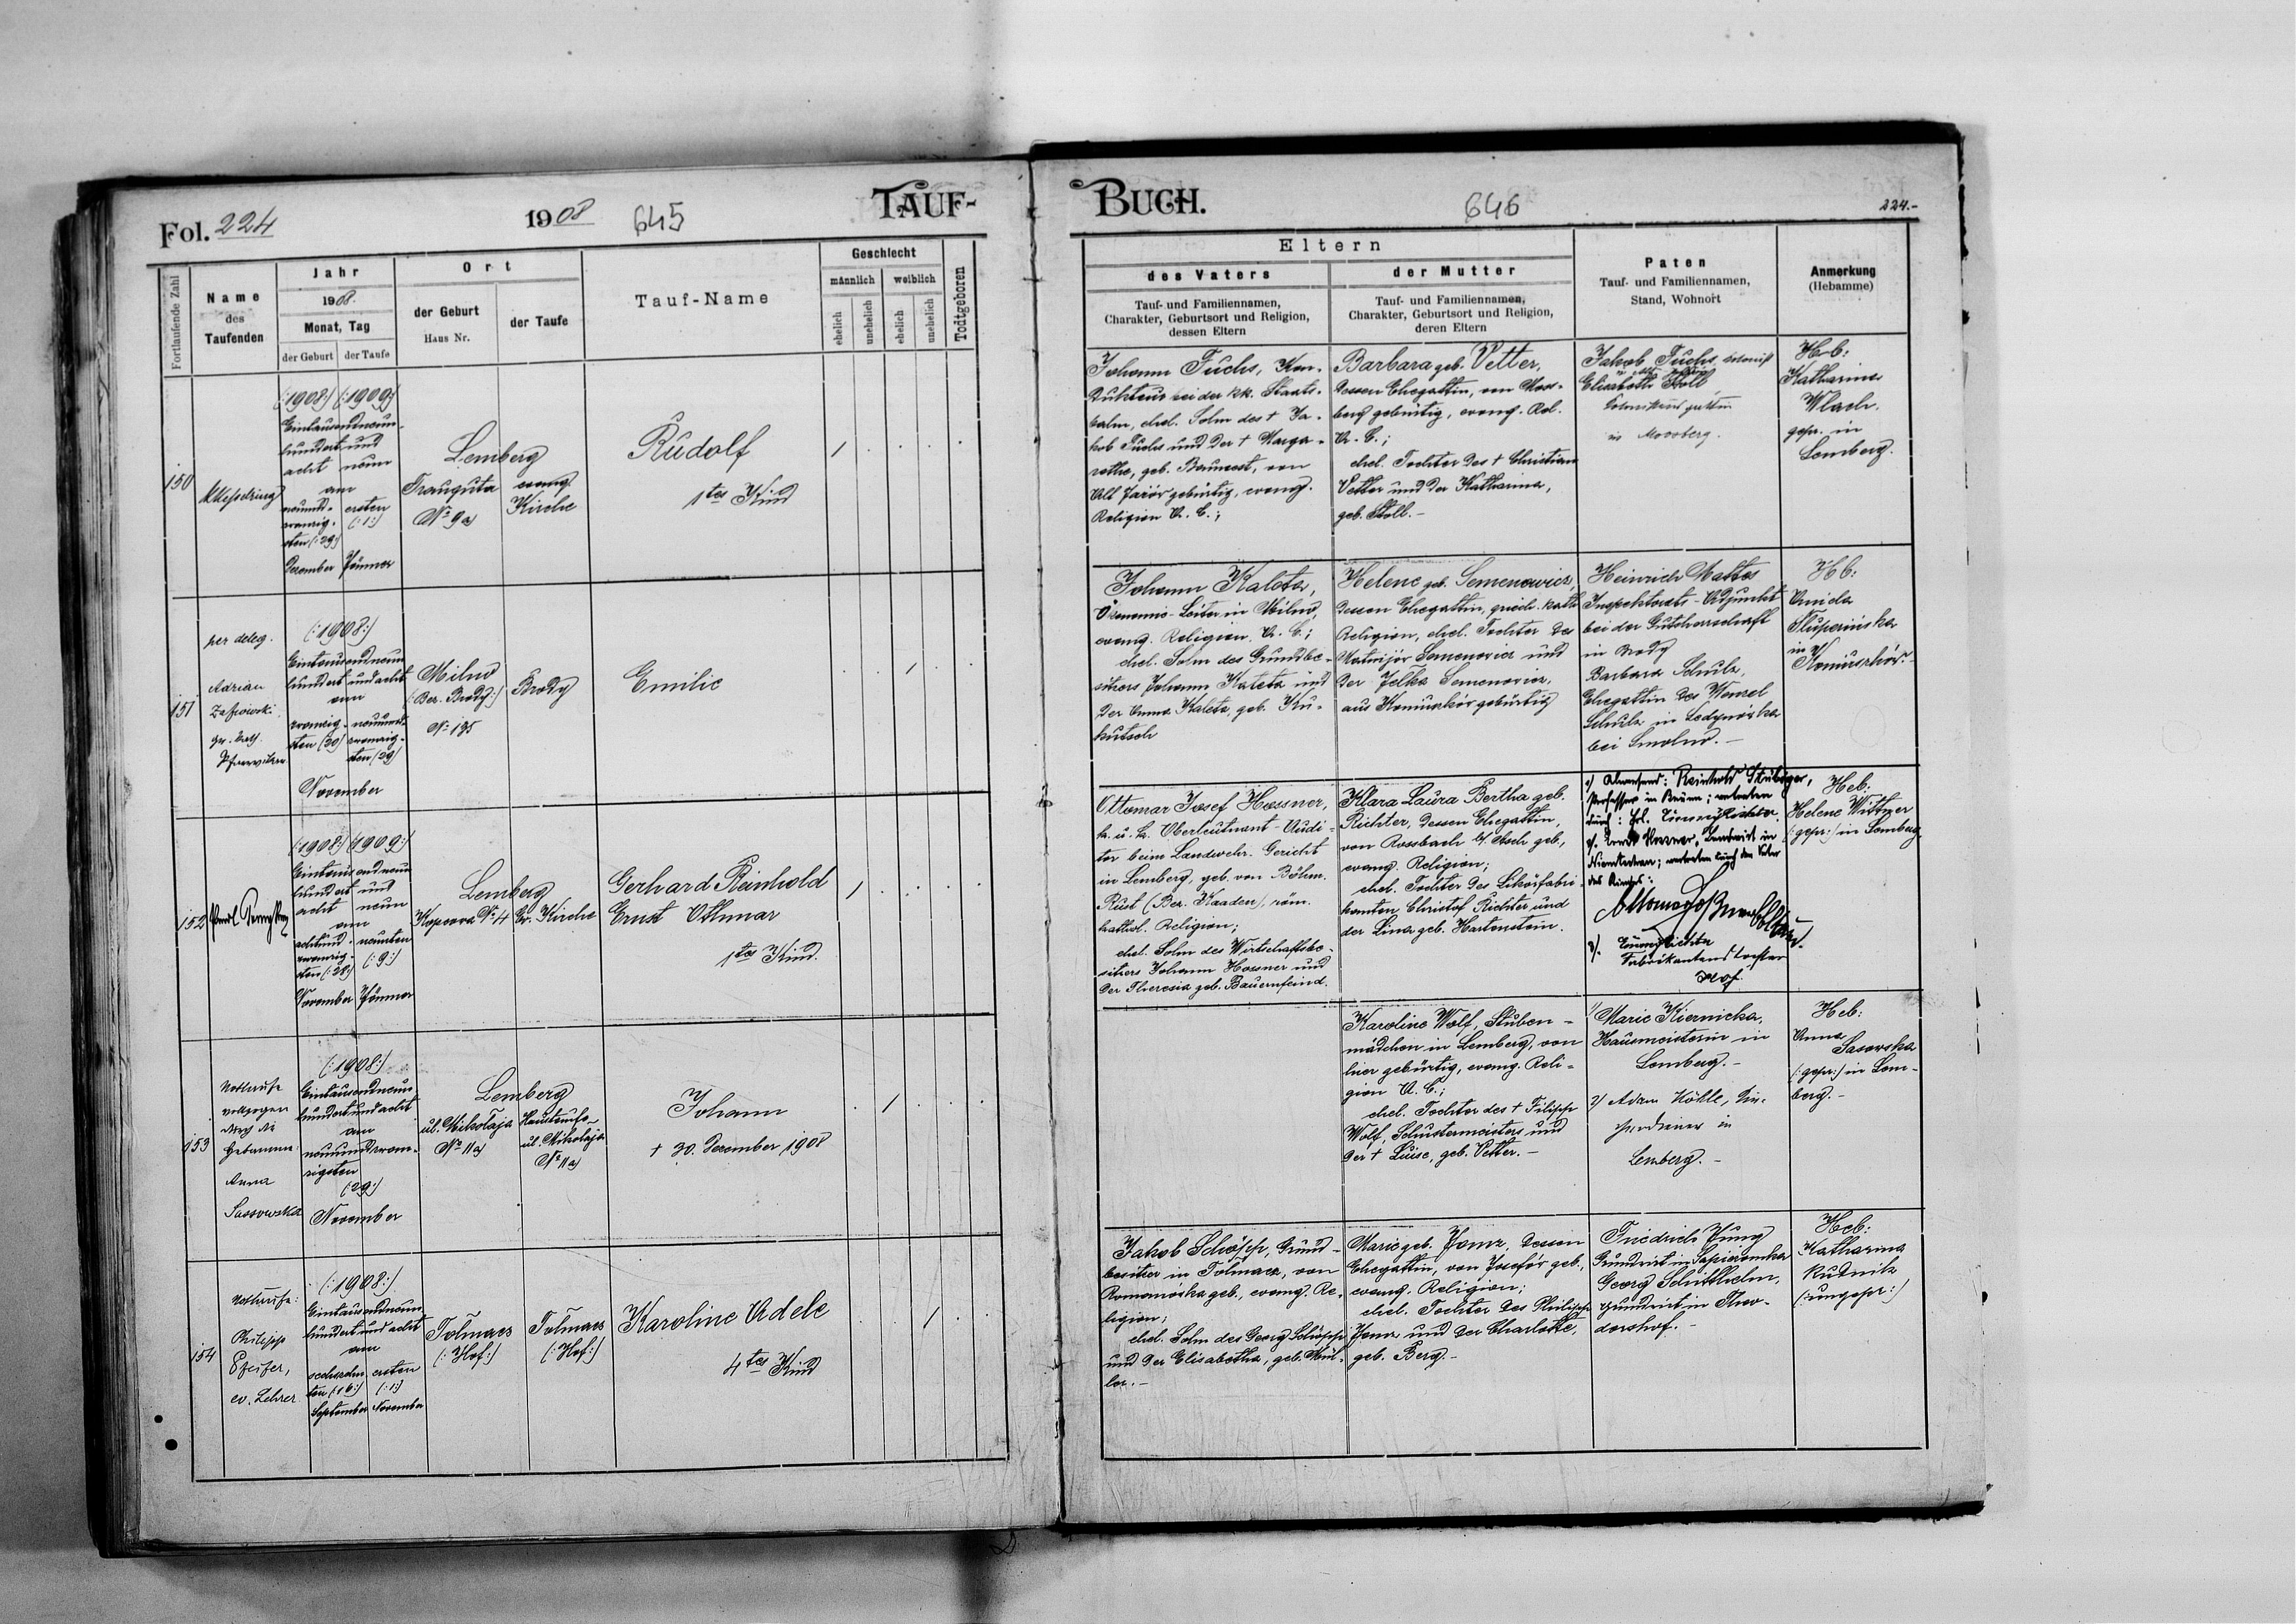 Fol. 224
1908
645
TAUF-
Fortlaufende Zahl
Name
des
Taufenden
Jahr
1908.
Monat, Tag
der Geburt
der Taufe
Ort
der Geburt
Haus Nr.
der Taufe
Tauf-Name
Geschlecht
männlich
weiblich
ehelich
unehelich
ehelich
unehelich
Todtgeboren
150
Kesselring
(:1908:) (:1909:)
Eintausendneun-
hundert und
acht neun
am
neunund- ersten
zwanzig- (:1:)
sten (:29:)
Dezember Jänner
Lemberg
Trauguta
No 9a)
evang.
Kirche
Rudolf
1tes Kind
1
151
per deleg.
Adrian
(:1908:)
Eintausendneun
hundert und acht
am
zwanzig- neunund-
sten (20) zwanzig-
sten (29)
November
Milno
(Ber. Brody:)
No 195
Brody
Emilie
1
152
(:1908:) (:1909:)
Eintausendneun
hundert und
acht neun
am
achtund- neunten
zwanzig- (:9:)
sten (:28:)
November Jänner
Lemberg
Kopcowa No 4
Ev. Kirche
Gerhard Reinhold
Ernst Othmar
1tes Kind.
1
153
Nottaufe
vollzogen
durch die
Hebamme:
Anna
Sassowska
(:1908:)
Eintausendneun-
hundert und acht
am
neunundzwan-
zigsten
(:29:)
November
Lemberg
ul. Mikolaja
No 11a)
Haustaufe
ul. Mikolaja
No 11a)
Johann
+ 30. Dezember 1908
1
154
Nottaufe:
Philipp
Pfeifer,
ev. Lehrer
(:1908:)
Eintausendneun
hundert und acht
am
sechszehn- ersten
ten (:16:) (:1:)
September November
Tolmacz
(:Hof:)
Tolmacz
(:Hof:)
Karoline Adele
4tes Kind
1
BUCH.
646
224.-
Eltern
des Vaters
Tauf- und Familiennamen,
Charakter, Geburtsort und Religion,
dessen Eltern
der Mutter
Tauf- und Familiennamen,
Charakter, Geburtsort und Religion,
deren Eltern
Paten
Tauf- und Familiennamen,
Stand, Wohnort
Anmerkung
(Hebamme)
Johann Fuchs, Kon-
dukteur bei der kk. Staats-
bahn, ehel. Sohn des + Ja-
kob Fuchs und der + Marga-
rethe, geb. von
Alt Jazór gebürtig, evang.
Religion A. C.;
Barbara geb. Vetter,
dessen Ehegattin, von Moos-
berg gebürtig, evang. Rel.
A. C.;
ehel. Tochter des + Christian
Vetter und der Katharina,
geb. Stoll.-
Jakob Fuchs, Kolonist
Elisabeth Stoll
Kolonistens gattin
in Moosberg.
Heb:
Katharina
Wlach.
gepr. in
Lemberg.
Johann Kaleta,
Ökonomie-Leiter in Milno,
evang. Religion A. C.;
ehel. Sohn des Grundbe-
sitzers Johann Kaleta und
der Anna Kaleta, geb. Ku-
kutsch
Helene geb. Semenowicz,
dessen Ehegattin, griech. kath.
Religion, ehel. Tochter des
Matvijór Semenowicz und
der Jelka Semenowicz,
aus Komuschór gebürtig
Heinrich Mattes
Inspektorats-Adjunkt
bei der Gutsherrschaft
in Brody
Barbara Schulz,
Ehegattin des Wenzel
Schulz in
bei Smolno.-
Hb:
in
Ottomar Josef Hossner,
k. u. k. Oberleutnant-Audi-
tor beim Landwehr-Gericht
in Lemberg, geb. von Böhm.
Rust (Ber. Kaaden), röm.
kathol. Religion;
ehel. Sohn des Wirtschaftsbe-
sitzers Johann Hossner und
der Theresia geb. Bauernfeind.
Klara Laura Bertha geb.
Richter, dessen Ehegattin,
von Rossbach b/ Asch geb.,
evang. Religion;
ehel. Tochter des Likörfabri-
kanten Christof Richter und
der Lina geb. Hartenstein.
1) Abwesend: Reinhold Stübiger,
Professor in Brünn; vertreten
durch: Frl. Richter
des Kindes:
3). Richter
Fabrikantenstochter
Hof.
Heb:
Helene Wittger
(:gepr:) in Lemberg
Karoline Wolf, Stuben-
mädchen in Lemberg, von
hier gebürtig, evang. Reli-
gion A. C.;
ehel. Tochter des + Filipp
Wolf, Schustermeisters und
der + Luise, geb. Vetter.-
1) Marie Kiernicka,
Hausmeisterin in
Lemberg.-
2) Adam Höhle,
in
Lemberg.-
Heb:
Anna
Sasowska
(:gepr:) in Lem-
berg.-
Jakob Schöpp, Grund-
besitzer in Tolmacz, von
Romanówka geb., evang. Re-
ligion;
ehel. Sohn des Georg Schöpp
und der Elisabetha, geb. Mül-
ler.-
Marie geb. Janz, dessen
Ehegattin, von Josefór geb.,
evang. Religion;
ehel. Tochter des Philipp
Janz und der Charlotte,
geb. Berg.-
Friedrich Jung
Grundwirt in Sapiezanka
Georg Schittlhelm,
Grundwirt in Theo-
dorshof.-
Heb:
Katharina
Rudnik
(:ungepr:)